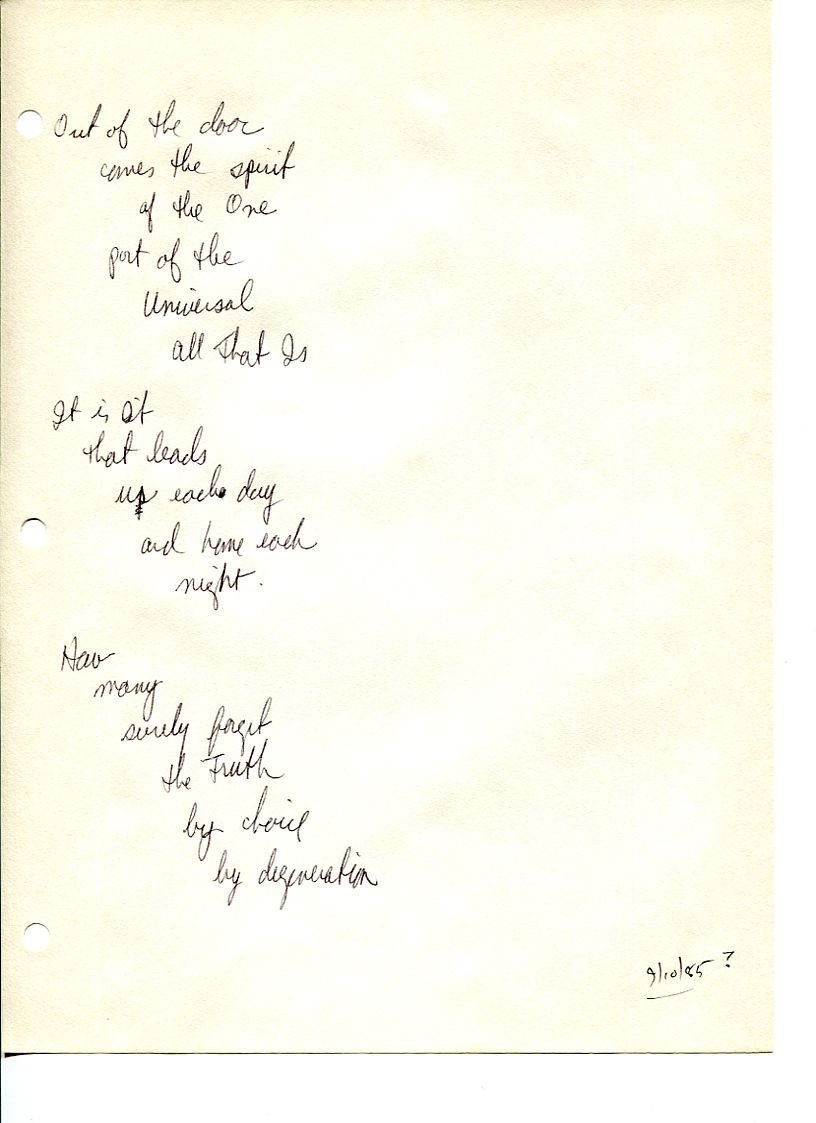 Out of the door
comes the spirit
of the One
part of the
Universal
all That Is
It is it
that leads
up each day
and home each
night.
How
many
surely forget
the Truth
by choice
by degeneration
9/10/85 ?